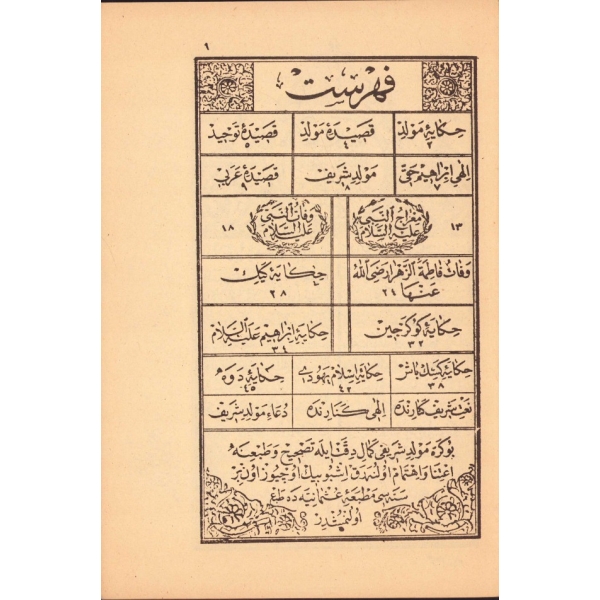 ١
فهرست
حكايۀ مولد ٢ قصيدۀ مولد ٤ قصيدۀ توحيد ٥
الهى ابراهيم حقى ٧ مولد شريف ٨ قصيدۀ عربى ٩
١٣ معراج النبى عليه السلام وفات النبى عليه السلام ١٨
وفات فاطمة الزهرا رضى الله عنها ٢٤ حكايۀ كيك ٢٨
حكايۀ كوكرجين ٣٢ حكايۀ ابراهيم عليه السلام ٣٤
حكايۀ كسك باش ٣٨ حكايۀ اسلام يهودى ٤٢ حكايۀ دوه ٤٥
نعت شريف كنارنده الهى كنارنده دعاء مولد شريف
بو كره مولد شريفى كمال دقت ايله تصحيح و طبعنه
اعتنا و اهتمام اولنه رق اشبو بيك اوچيوز اون بر
سنه سى مطبعۀ عثمانيه ده طبع
اولنمشدر